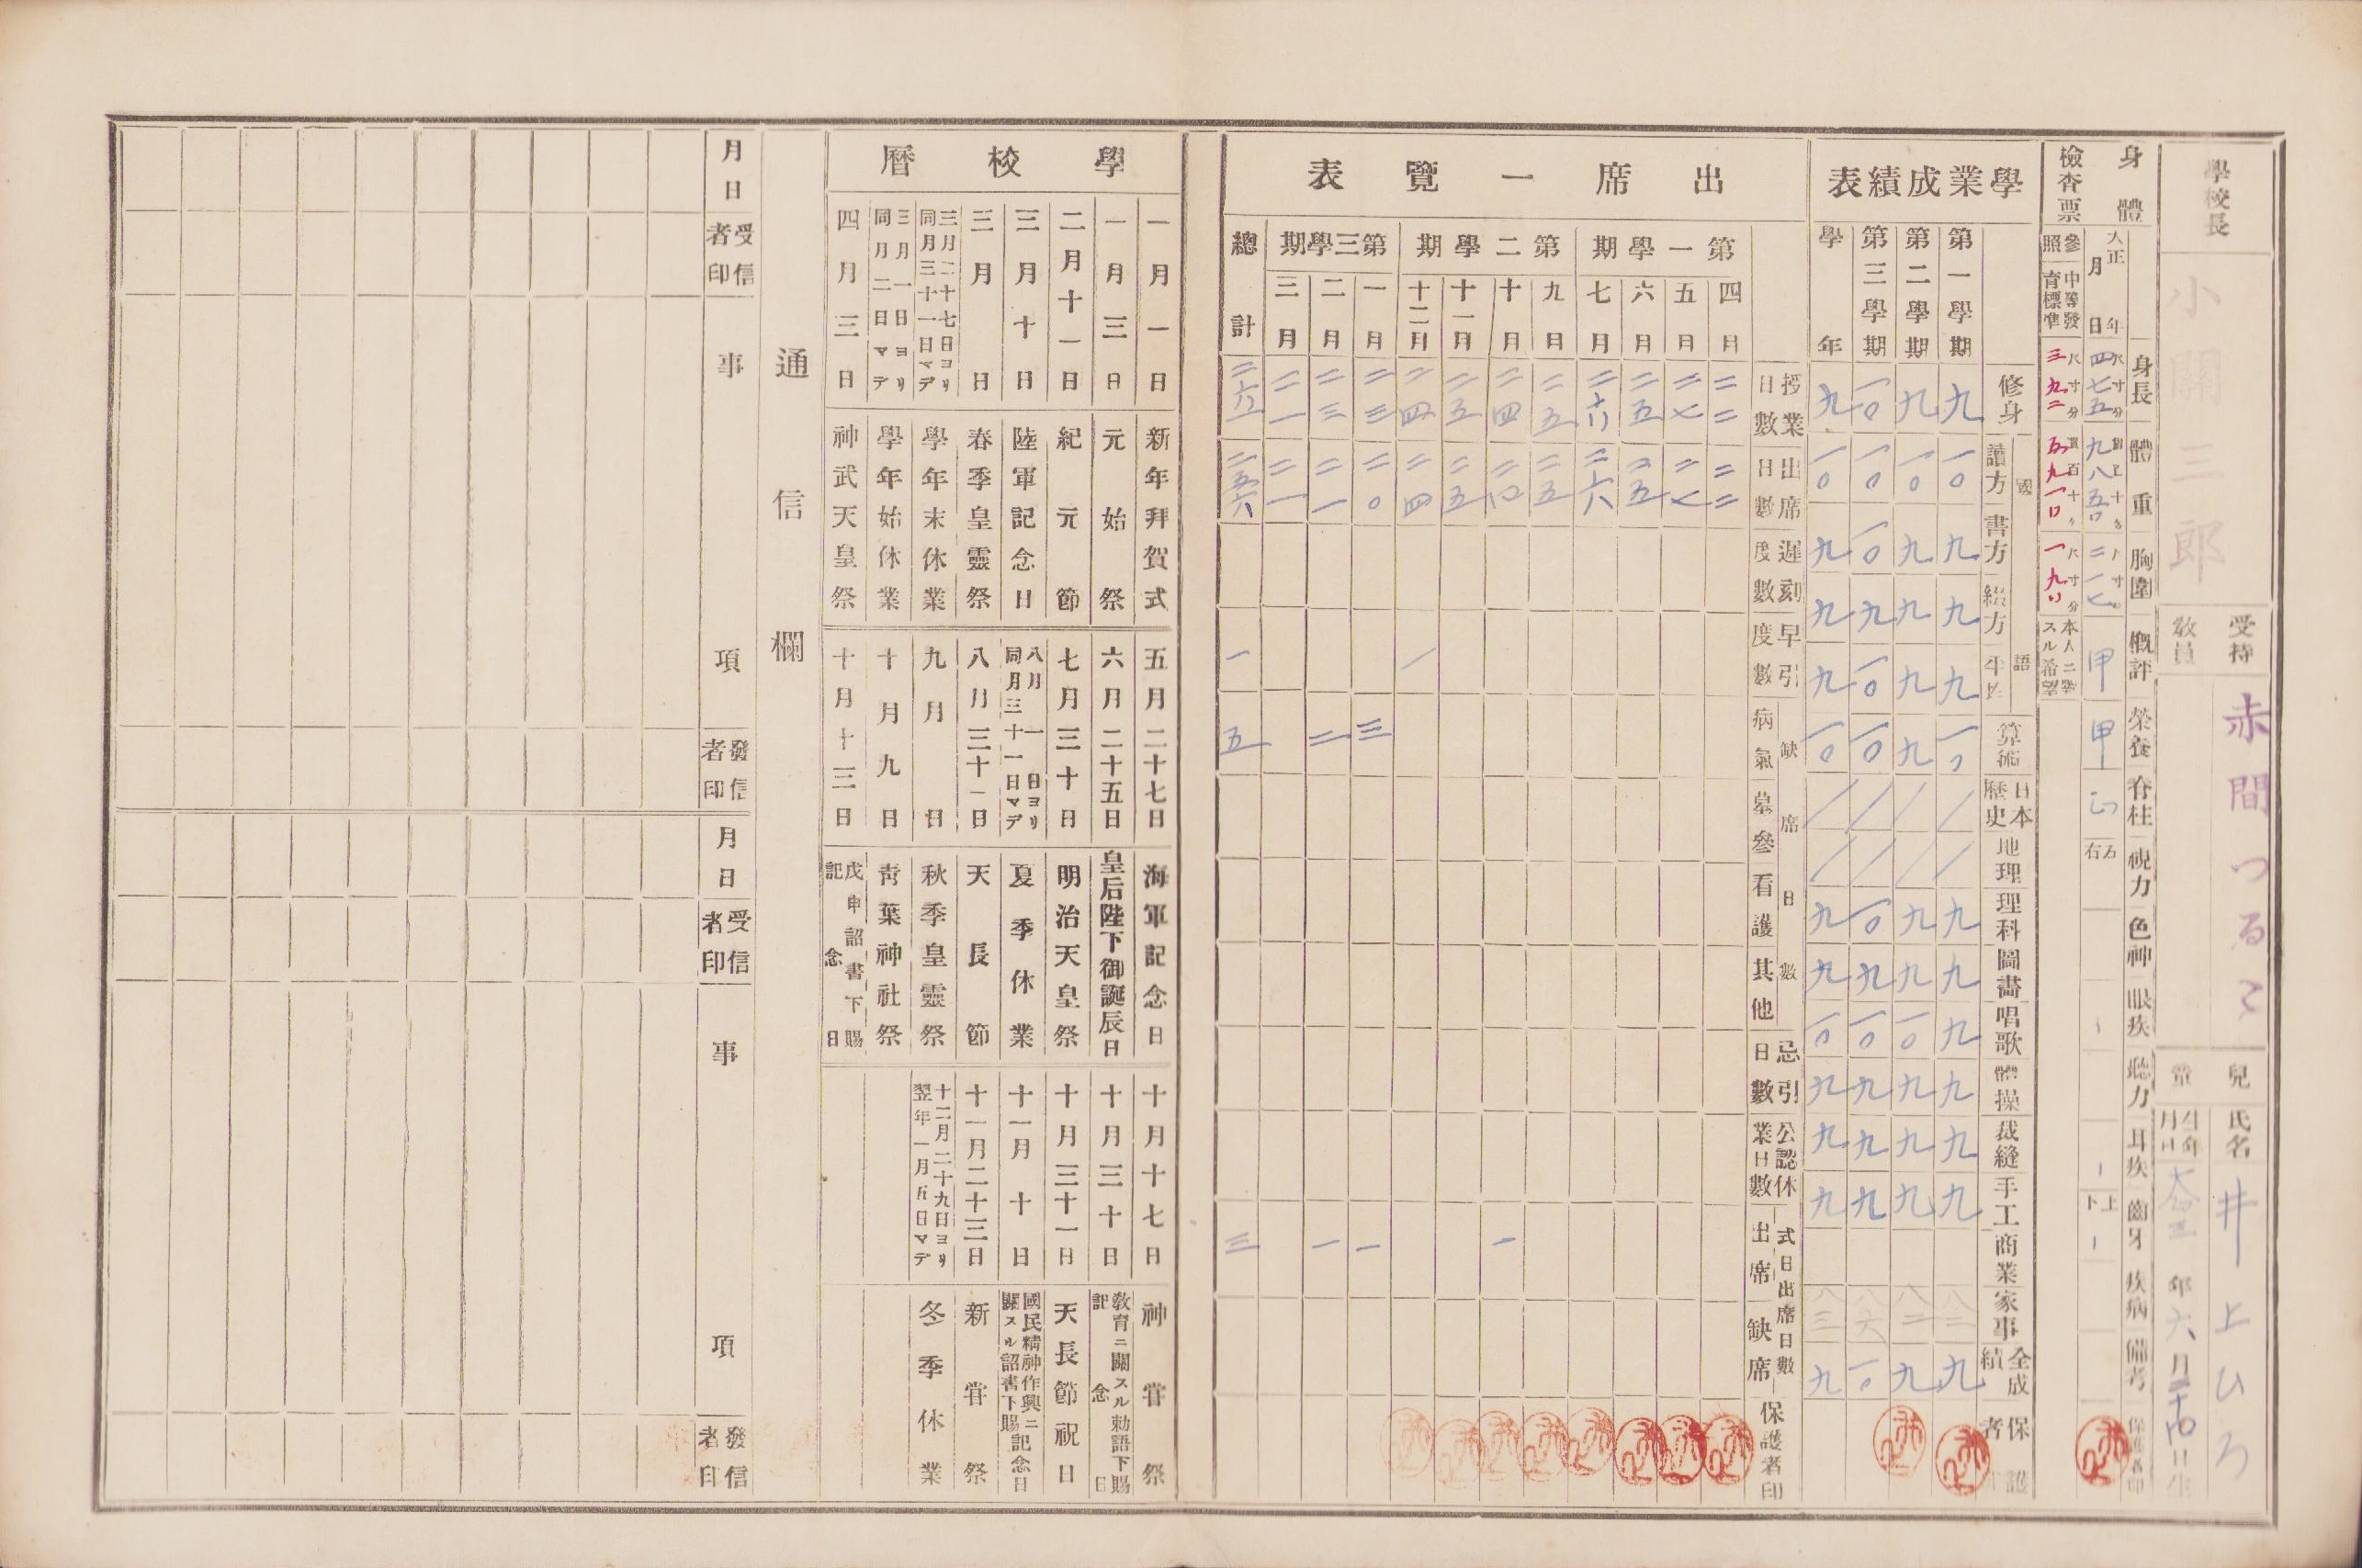 學校長
小關三郎
受持教員
赤間つるこ
兒童
氏名
井上ひろ
生年月日
年六月 日生
身體檢查票
大正 年 月 日
參照 中等發育標準
身長
尺寸分
四七五
三九二
體重
九八五〇
五九一〇
胸圍
尺寸分
二一七
一九〇
概評
甲
本人ニ對スル希望
榮養
甲
脊柱
正
視力
左
右
色神
眼疾
聽力
耳疾
齒牙
上
下
疾病
備考
保護者印
學業成績表
第一學期
第二學期
第三學期
學年
修身
九
九
一〇
九
國語
讀方
一〇
一〇
一〇
一〇
書方
九
九
一〇
九
綴方
九
九
九
九
平均
九
九
一〇
九
算術
一〇
九
一〇
一〇
日本歷史
地理
理科
九
九
一〇
九
圖畵
九
九
九
九
唱歌
九
一〇
一〇
一〇
體操
九
九
九
九
裁縫
九
九
九
九
手工
九
九
九
九
商業
家事
全成績
九
九
一〇
九
保護者
出席一覽表
第一學期
四月
五月
六月
七月
第二學期
九月
十月
十一月
十二月
第三學期
一月
二月
三月
總計
授業日數
二二
二七
二五
二六
二五
二四
二五
二四
二三
二三
二一
出席日數
二二
二七
二五
二六
二五
二四
二五
二四
二〇
二一
二一
二五六
遲刻度數
早引度數
一
一
缺席日數
病氣
三
二
五
墓參
看護
其他
忌引日數
公認休業日數
式日出席日數
出席
一
一
一
三
缺席
保護者印
學校曆
一月一日
新年拜賀式
一月三日
元始祭
二月十一日
紀元節
三月十日
陸軍記念日
三月 日
春季皇靈祭
三月二十七日ヨリ同月三十一日マデ
學年末休業
三月一日ヨリ同月二日マデ
學年始休業
四月三日
神武天皇祭
五月二十七日
海軍記念日
六月二十五日
皇后陛下御誕辰日
七月三十日
明治天皇祭
八月一日ヨリ同月三十一日マデ
夏季休業
八月三十一日
天長節
九月 日
秋季皇靈祭
十月九日
靑葉神社祭
十月十三日
戊申詔書下賜記念日
十月十七日
神甞祭
十月三十日
敎育ニ關スル勅語下賜記念日
十月三十一日
天長節祝日
十一月十日
國民精神作興ニ關スル詔書下賜記念日
十一月二十三日
新甞祭
十二月二十九日ヨリ翌年一月五日マデ
冬季休業
通信欄
月日
受信者印
事項
發信者印
月日
受信者印
事項
發信者印